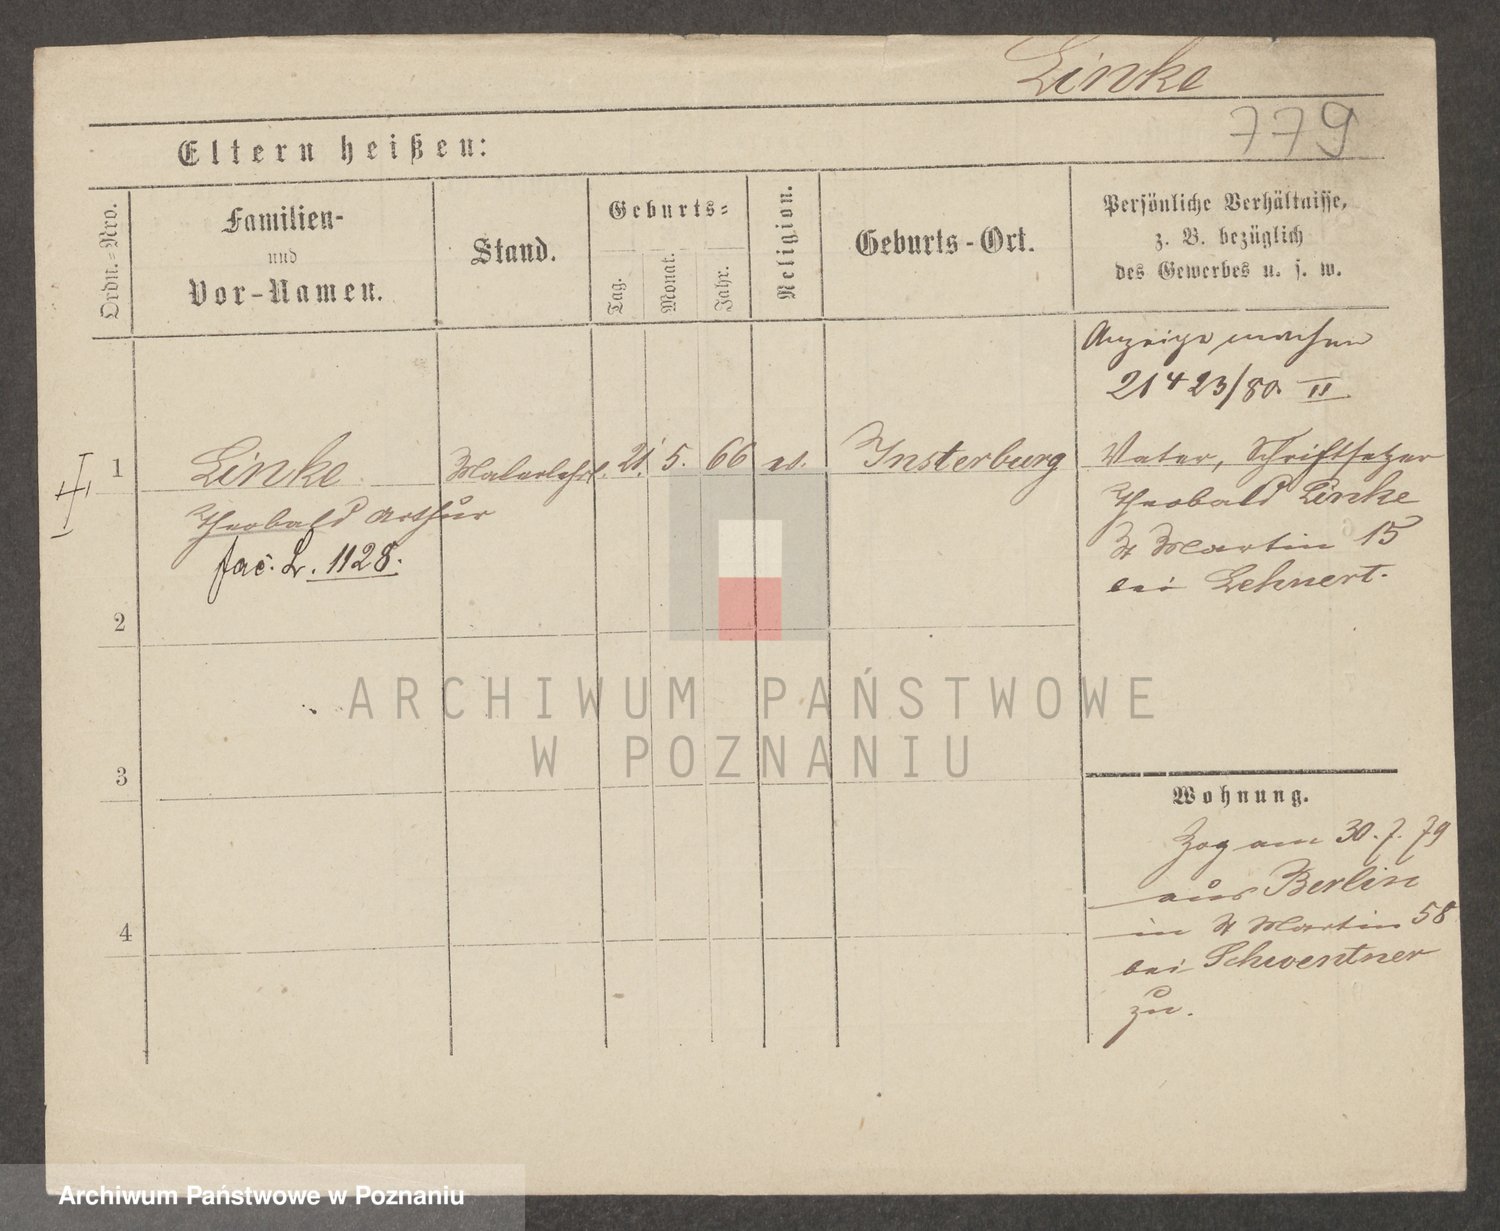 Linke
779
Eltern heißen:
Ordn.=Nro.
Familien-
und
Vor-Namen.
Stand.
Geburts=
Tag.
Monat.
Jahr.
Religion.
Geburts-Ort.
Persönliche Verhältnisse,
z. B. bezüglich
des Gewerbes u. s. w.
Anzeige machen
21 4 23/80. II
1
Linke
Malerlehrl.
21.
5.
66
ev.
Insterburg
Vater, Schriftsetzer
Theobald Arthur
Theobald Linke
fac. L. 1128.
St Martin 15
bei Lehnert.
2
3
4
Wohnung.
Zog am 30. 7. 79
aus Berlin
in St Martin 58
bei Schwentner
zu.
ARCHIWUM PAŃSTWOWE
W POZNANIU
Archiwum Państwowe w Poznaniu